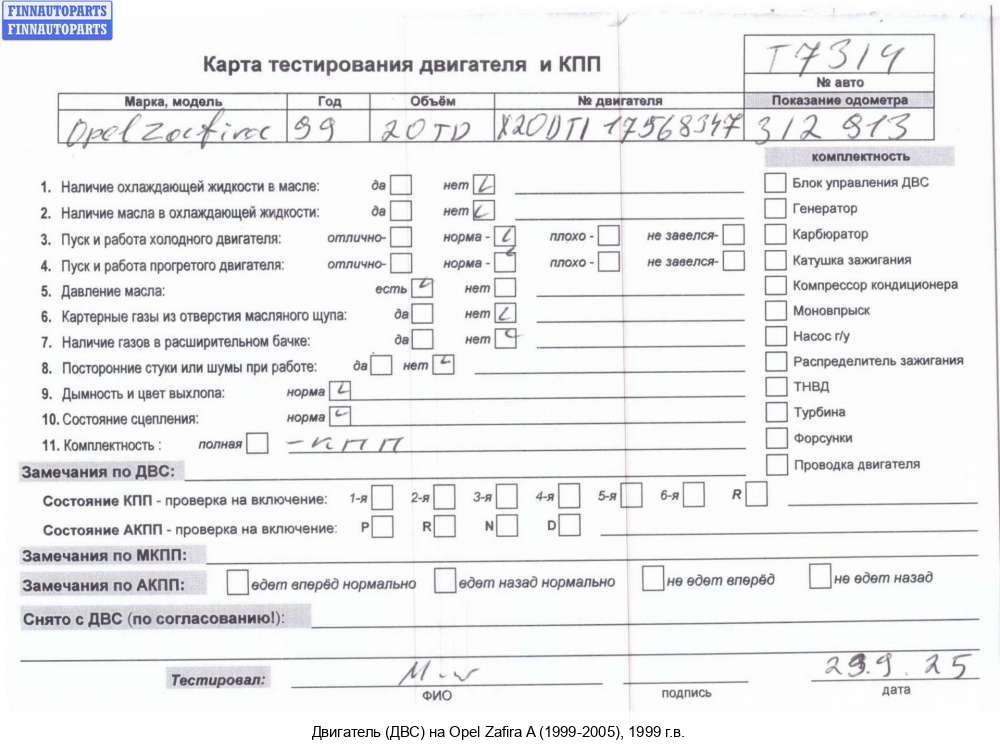 FINNAUTOPARTS
FINNAUTOPARTS
Карта тестирования двигателя и КПП
T7314
№ авто
Марка, модель Год Объём № двигателя Показание одометра
Opel Zafira 99 20TD X20DTI 17568347 312 913
комплектность
1. Наличие охлаждающей жидкости в масле: да нет
Блок управления ДВС
2. Наличие масла в охлаждающей жидкости: да нет
Генератор
3. Пуск и работа холодного двигателя: отлично- норма - плохо - не завелся-
Карбюратор
4. Пуск и работа прогретого двигателя: отлично- норма - плохо - не завелся-
Катушка зажигания
5. Давление масла: есть нет
Компрессор кондиционера
6. Картерные газы из отверстия масляного щупа: да нет
Моновпрыск
7. Наличие газов в расширительном бачке: да нет
Насос г/у
8. Посторонние стуки или шумы при работе: да нет
Распределитель зажигания
9. Дымность и цвет выхлопа: норма
ТНВД
10. Состояние сцепления: норма
Турбина
11. Комплектность : полная - КПП
Форсунки
Проводка двигателя
Замечания по ДВС:
Состояние КПП - проверка на включение: 1-я 2-я 3-я 4-я 5-я 6-я R
Состояние АКПП - проверка на включение: P R N D
Замечания по МКПП:
Замечания по АКПП: едет вперёд нормально едет назад нормально не едет вперёд не едет назад
Снято с ДВС (по согласованию!):
Тестировал:
ФИО подпись дата
Двигатель (ДВС) на Opel Zafira A (1999-2005), 1999 г.в.